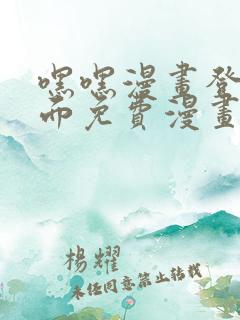 嘿嘿漫畫登
而免費漫畫
楊耀
未经同意禁止转载